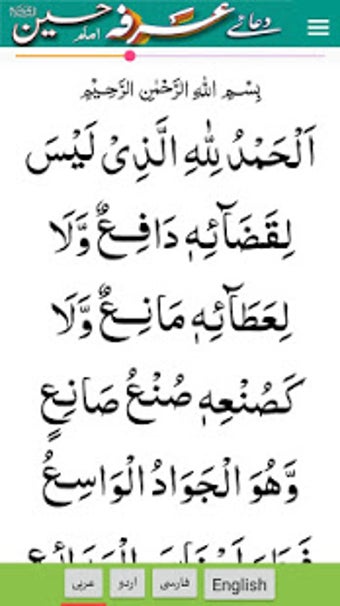 دعائے عرفہ امام حسین
بِسْمِ اللهِ الرَّحْمٰنِ الرَّحِيْمِ
اَلْحَمْدُ لِلّٰهِ الَّذِیْ لَیْسَ
لِقَضَآئِهٖ دَافِعٌ وَّلَا
لِعَطَآئِهٖ مَانِعٌ وَّلَا
كَصُنْعِهٖ صُنْعُ صَانِعٍ
وَّهُوَ الْجَوَادُ الْوَاسِعُ
عربی اردو فارسی English